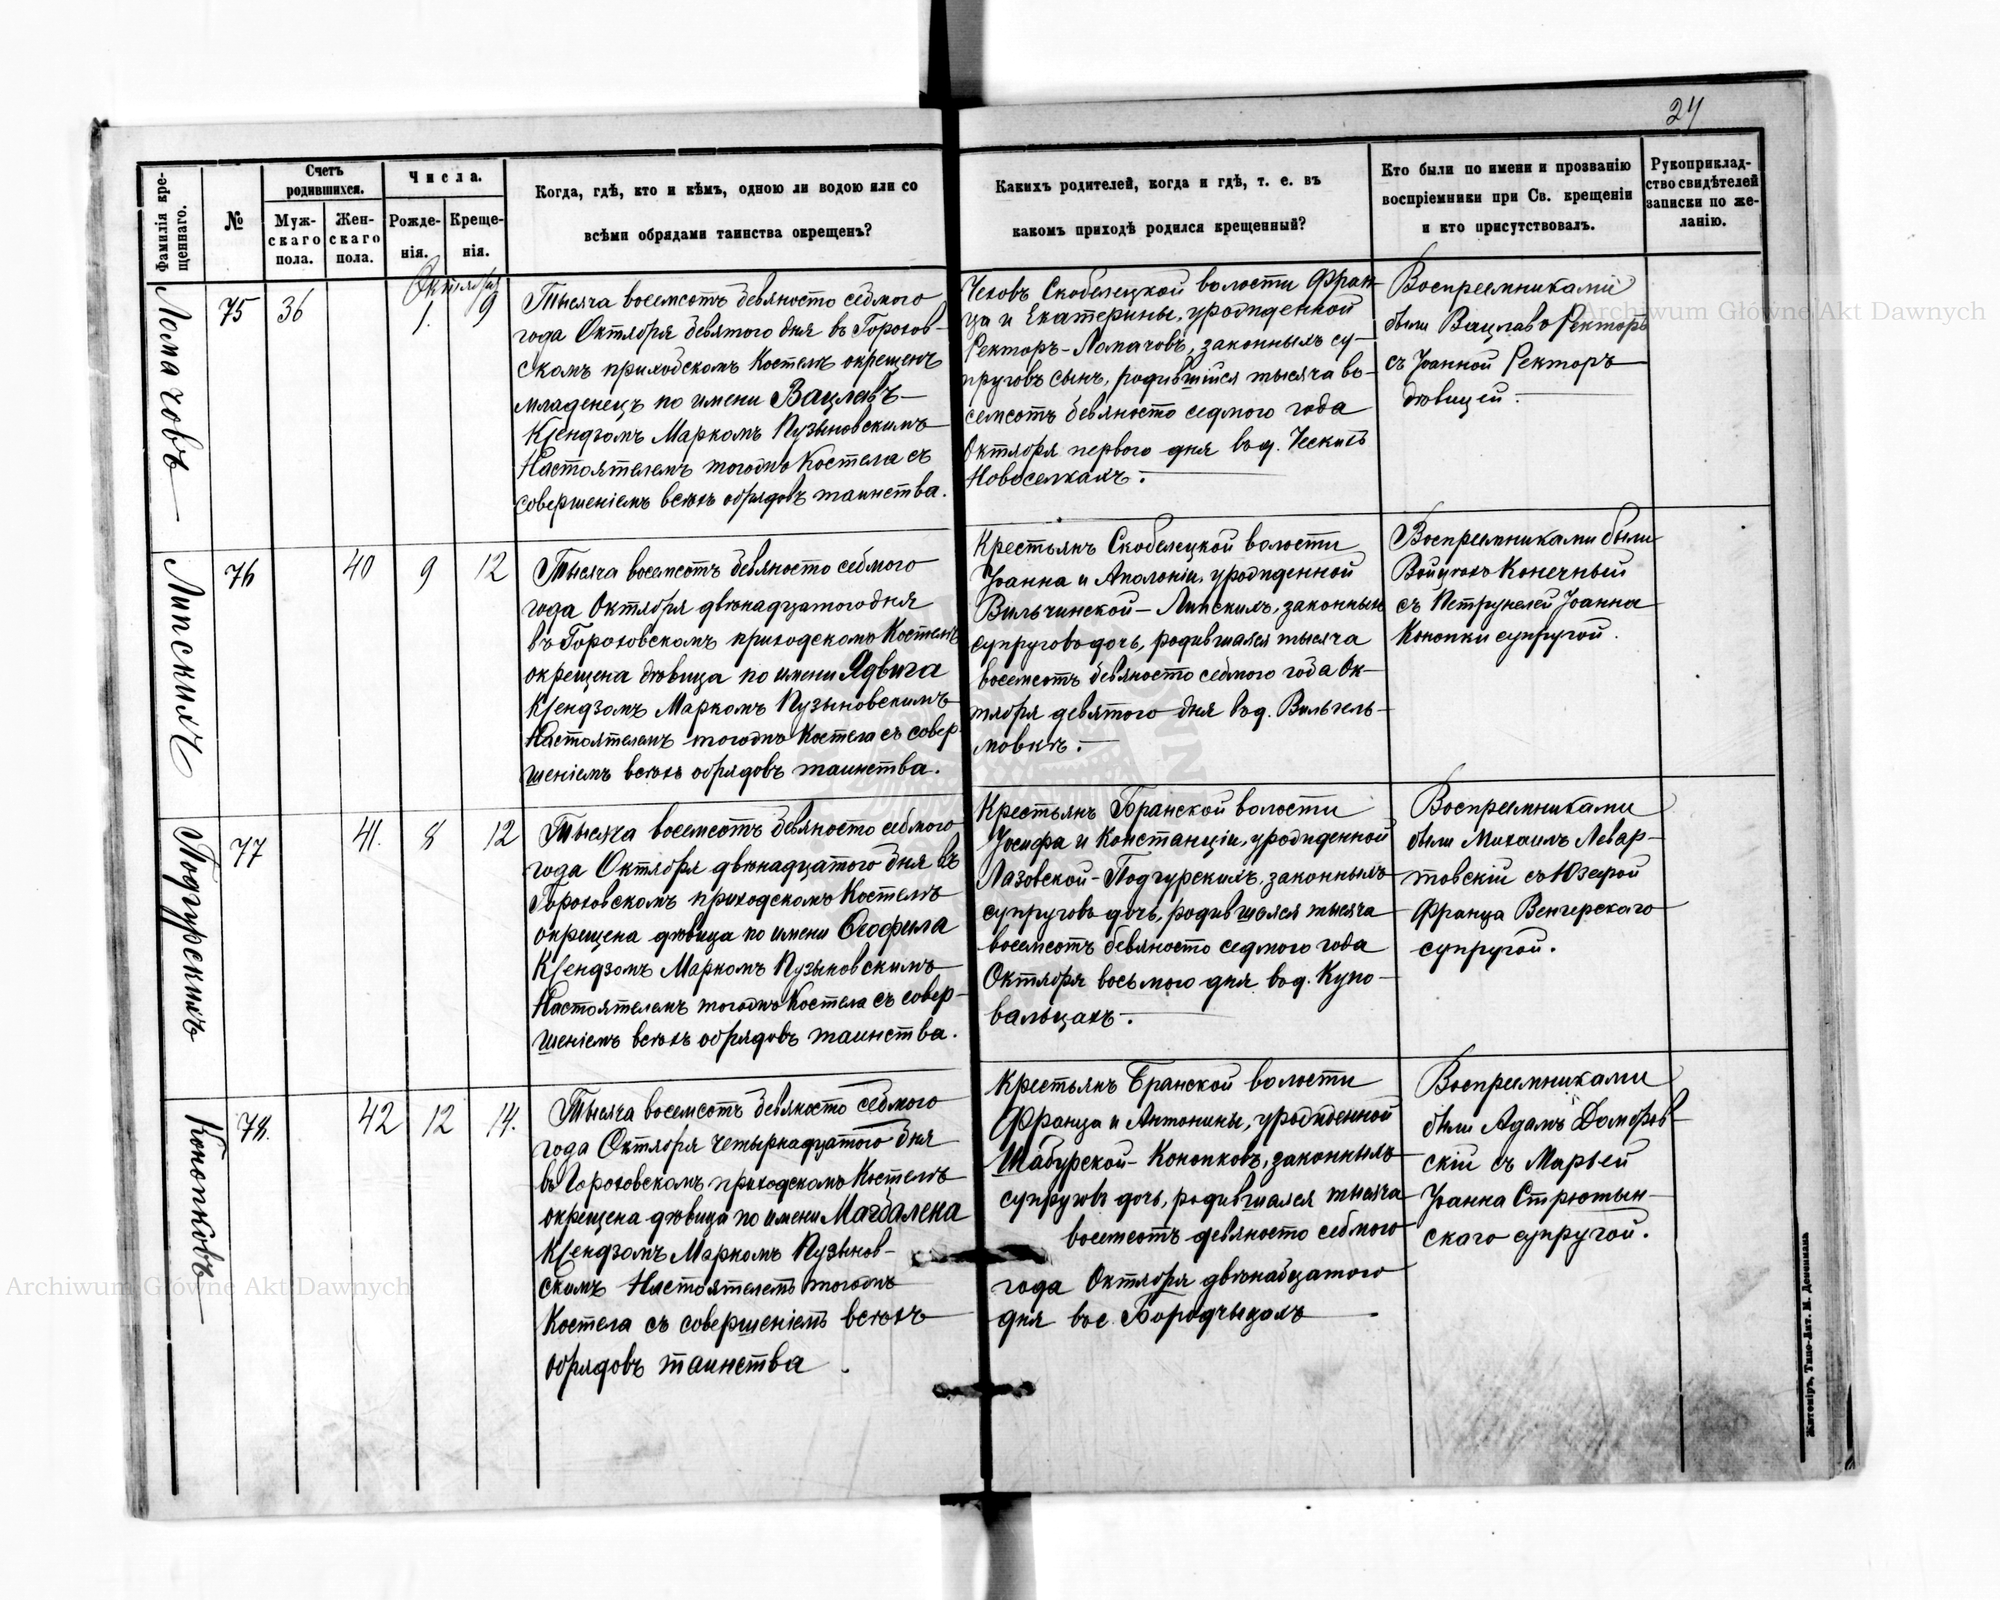 24
Фамилія кре-
щеннаго.
№
Счетъ
родившихся.
Муж-
скаго
пола.
Жен-
скаго
пола.
Числа.
Рожде-
нія.
Креще-
нія.
Когда, гдѣ, кто и кѣмъ, одною ли водою или со
всѣми обрядами таинства окрещенъ?
Какихъ родителей, когда и гдѣ, т. е. въ
какомъ приходѣ родился крещенный?
Кто были по имени и прозванію
воспріемники при Св. крещеніи
и кто присутствовалъ.
Рукоприклад-
ство свидѣтелей
записки по же-
ланію.
Октября
Ломачовъ
75
36
1.
9
Тысяча восемсотъ девяносто седмого
года Октября девятого дня въ Горохов-
скомъ приходскомъ Костелѣ окрещенъ
младенецъ по имени Вацлавъ
Ксендзомъ Маркомъ Пузыновскимъ
Настоятелемъ тогоже Костела съ
совершеніемъ всѣхъ обрядовъ таинства.
Чеховъ Скобелецкой волости Фран-
ца и Екатерины, урожденной
Ректоръ-Ломачовъ, законныхъ су-
пруговъ сынъ, родившійся тысяча во-
семсотъ девяносто седмого года
Октября первого дня въ д. Ческихъ
Новоселкахъ.
Воспреемниками
были Вацлавъ Ректоръ
съ Іоанной Ректоръ
дѣвицей.
Липскихъ
76
40
9
12
Тысяча восемсотъ девяносто седмого
года Октября двѣнадцатого дня
въ Гороховскомъ приходскомъ Костелѣ
окрещена дѣвица по имени Ядвига
Ксендзомъ Маркомъ Пузыновскимъ
Настоятелемъ тогоже Костела съ совер-
шеніемъ всѣхъ обрядовъ таинства.
Крестьянъ Скобелецкой волости
Іоанна и Аполоніи, урожденной
Вильчинской-Липскихъ, законныхъ
супруговъ дочь, родившаяся тысяча
восемсотъ девяносто седмого года Ок-
тября девятого дня въ д. Вильгель-
мовкѣ.
Воспреемниками были
Войцехъ Конечный
съ Петрунелей Іоанна
Конопки супругой.
Подгурскихъ
77
41.
8
12
Тысяча восемсотъ девяносто седмого
года Октября двѣнадцатого дня въ
Гороховскомъ приходскомъ Костелѣ
окрещена дѣвица по имени Ѳеофила
Ксендзомъ Маркомъ Пузыновскимъ
Настоятелемъ тогоже Костела съ совер-
шеніемъ всѣхъ обрядовъ таинства.
Крестьянъ Бранской волости
Іосифа и Констанціи, урожденной
Лазовской-Подгурскихъ, законныхъ
супруговъ дочь, родившаяся тысяча
восемсотъ девяносто седмого года
Октября восьмого дня въ д. Купо-
вальцахъ.
Воспреемниками
были Михаилъ Левар-
товскій съ Юзефой
Франца Венгерскаго
супругой.
Конопковъ
78.
42
12
14.
Тысяча восемсотъ девяносто седмого
года Октября четырнадцатого дня
въ Гороховскомъ приходскомъ Костелѣ
окрещена дѣвица по имени Магдалена
Ксендзомъ Маркомъ Пузынов-
скимъ Настоятелемъ тогоже
Костела съ совершеніемъ всѣхъ
обрядовъ таинства.
Крестьянъ Бранской волости
Франца и Антонины, урожденной
Шабурской-Конопковъ, законныхъ
супруговъ дочь, родившаяся тысяча
восемсотъ девяносто седмого
года Октября двѣнадцатого
дня въ с. Бородчыцахъ
Воспреемниками
были Адамъ Домбров-
скій съ Марьей
Іоанна Стрютын-
скаго супругой.
Житоміръ, Типо-Лит. М. Дененмана
Archiwum Główne Akt Dawnych
Archiwum Główne Akt Dawnych